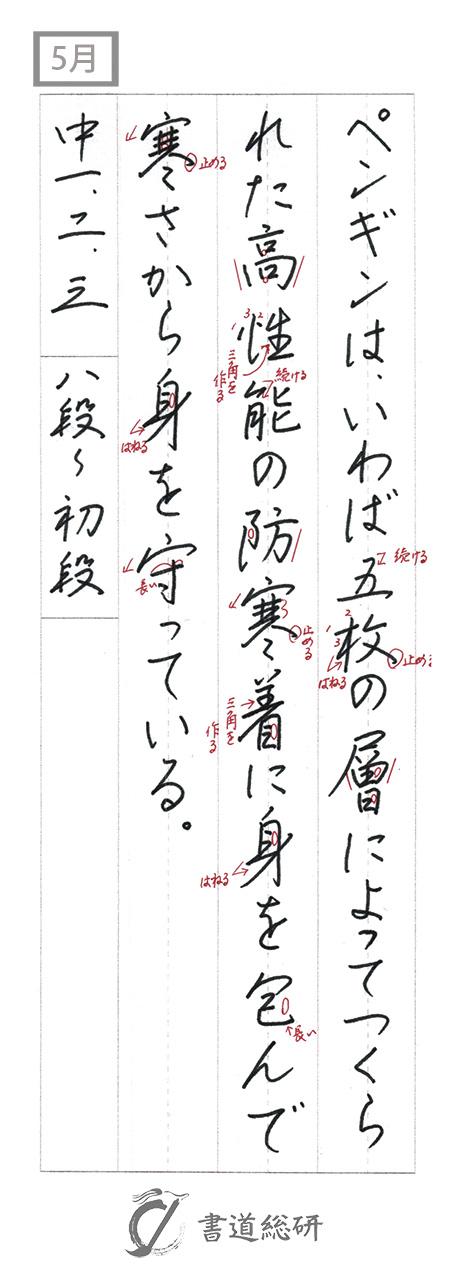 5月
ペンギンは、いわば五枚の層によってつくら
続ける
1
2
3
止め
はねる
れた高性能の防寒着に身を包んで
1
3
2
三角を
作る
続ける
止める
三角を
作る
はねる
長い
寒さから身を守っている。
止める
はねる
長い
中一、二、三
八段〜初段
書道総研